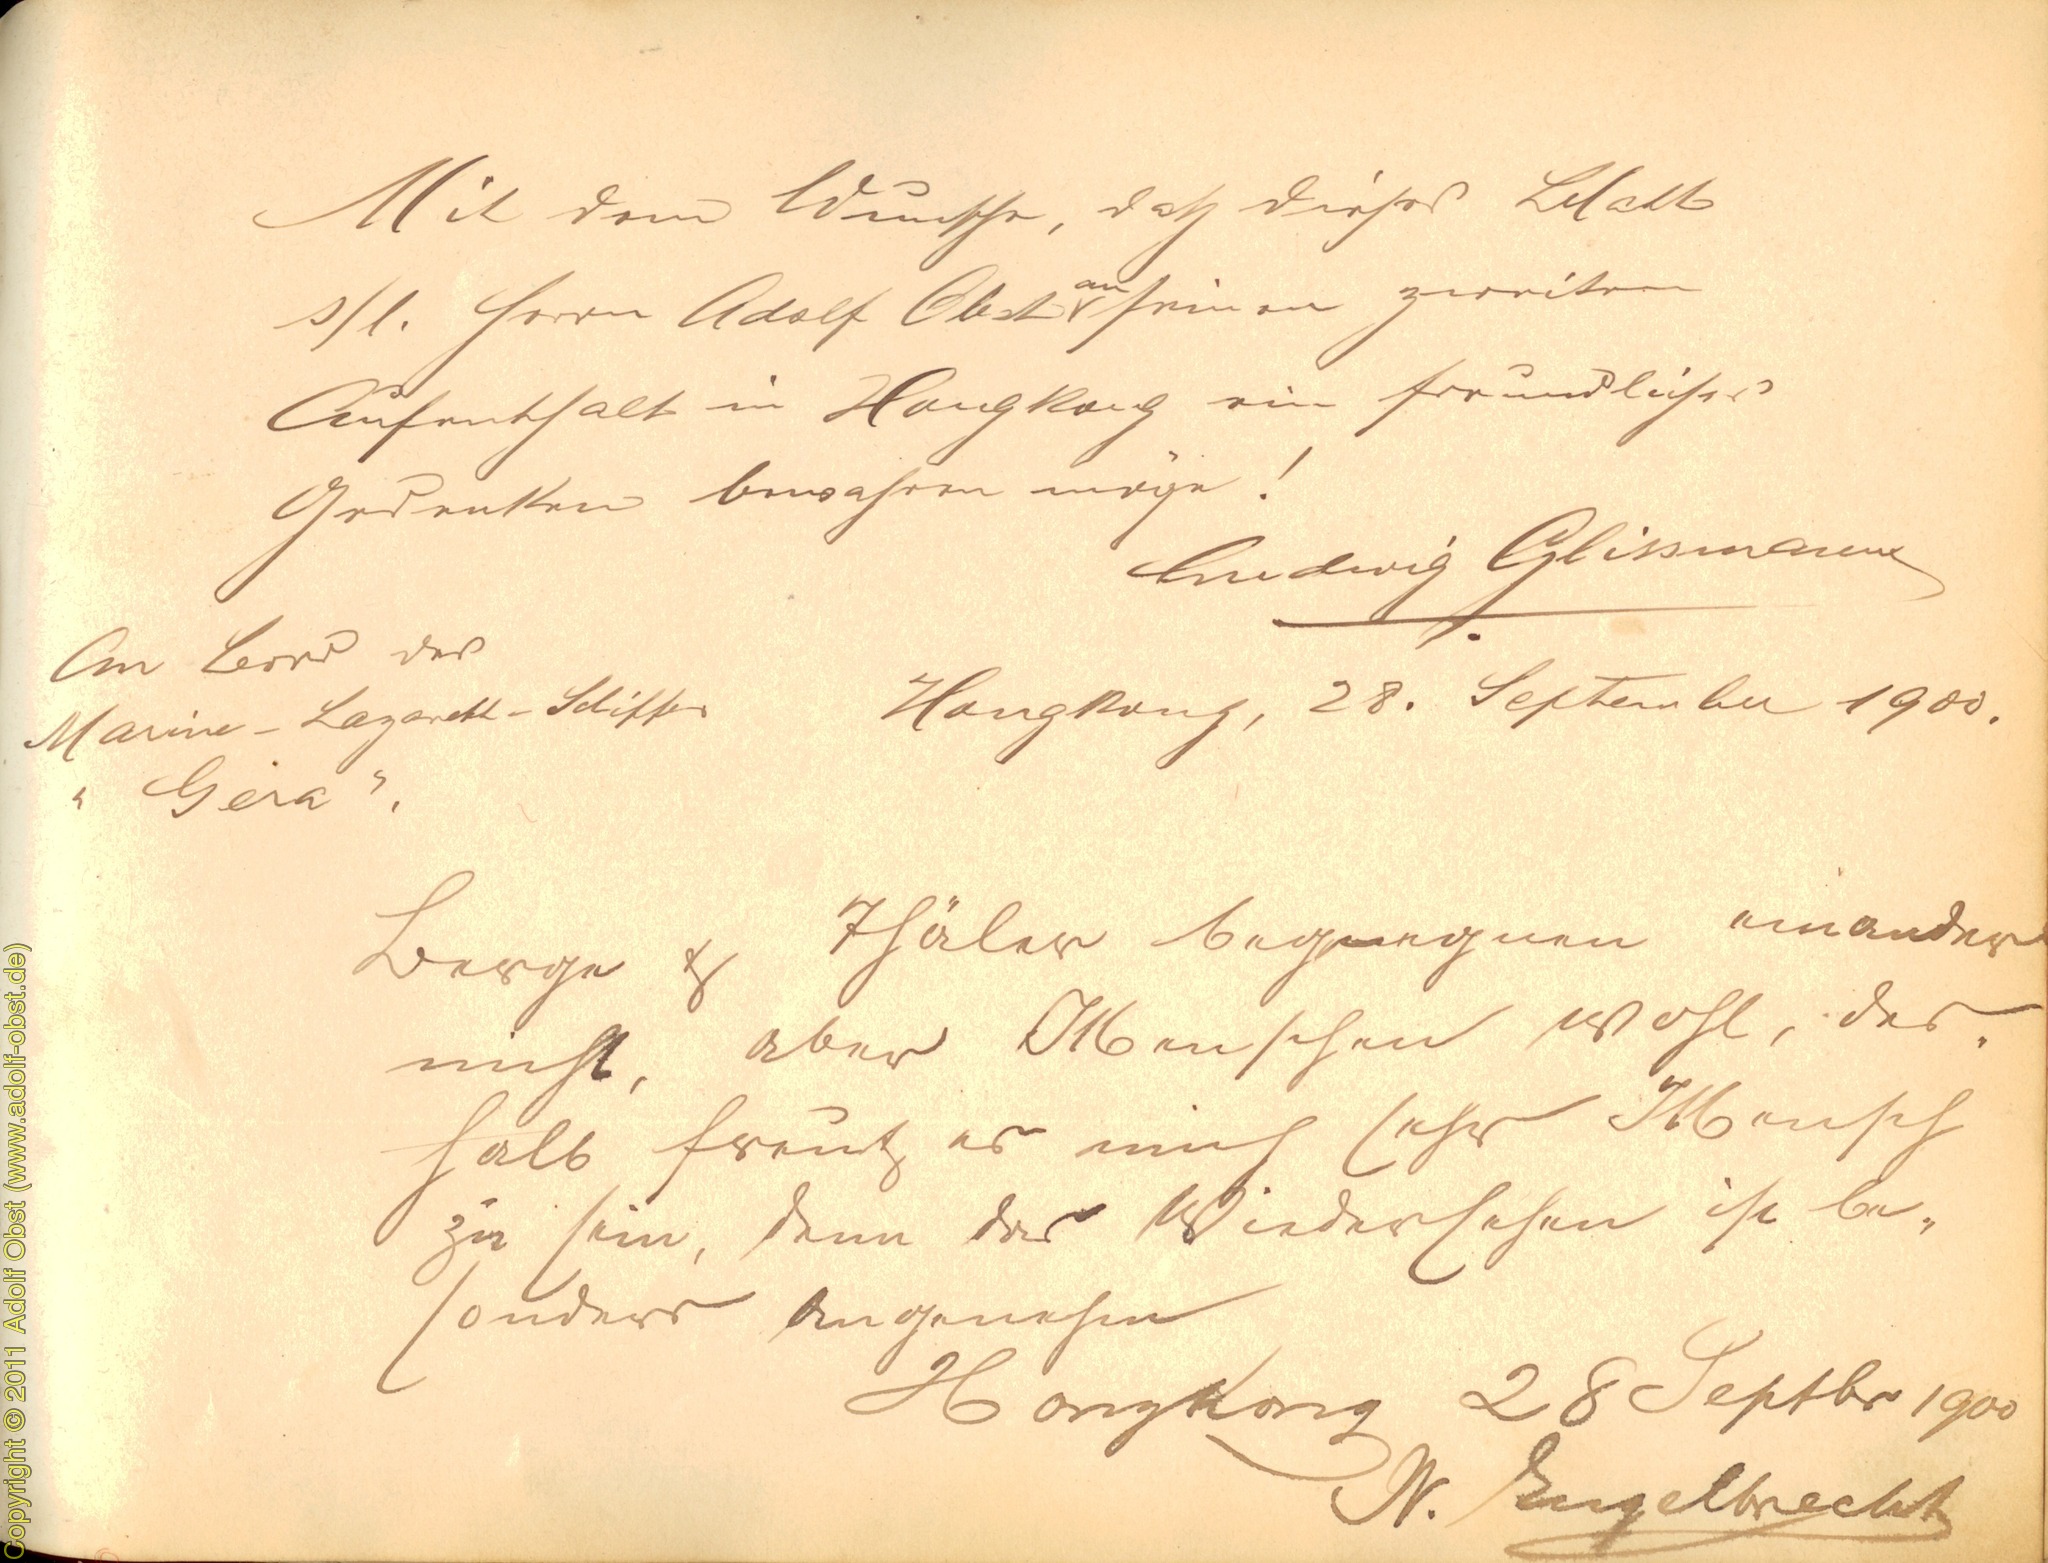 Mit dem Wunsche, daß dieses Blatt
s/l. Herrn Adolf Obst an seinen zweiten
Aufenthalt in Hongkong ein freundliches
Gedenken bewahren möge!
Ludwig Glissmann
An Bord des
Marine-Lazareth-Schiffes
"Gera".
Hongkong, 28. September 1900.
Berge & Thäler begegnen einander
nicht, aber Menschen wohl, des-
halb freut es mich sehr Mensch
zu sein, denn das Wiedersehen ist be-
sonders angenehm
Hongkong 28 Septbr 1900
W. Engelbrecht
Copyright © 2011 Adolf Obst (www.adolf-obst.de)